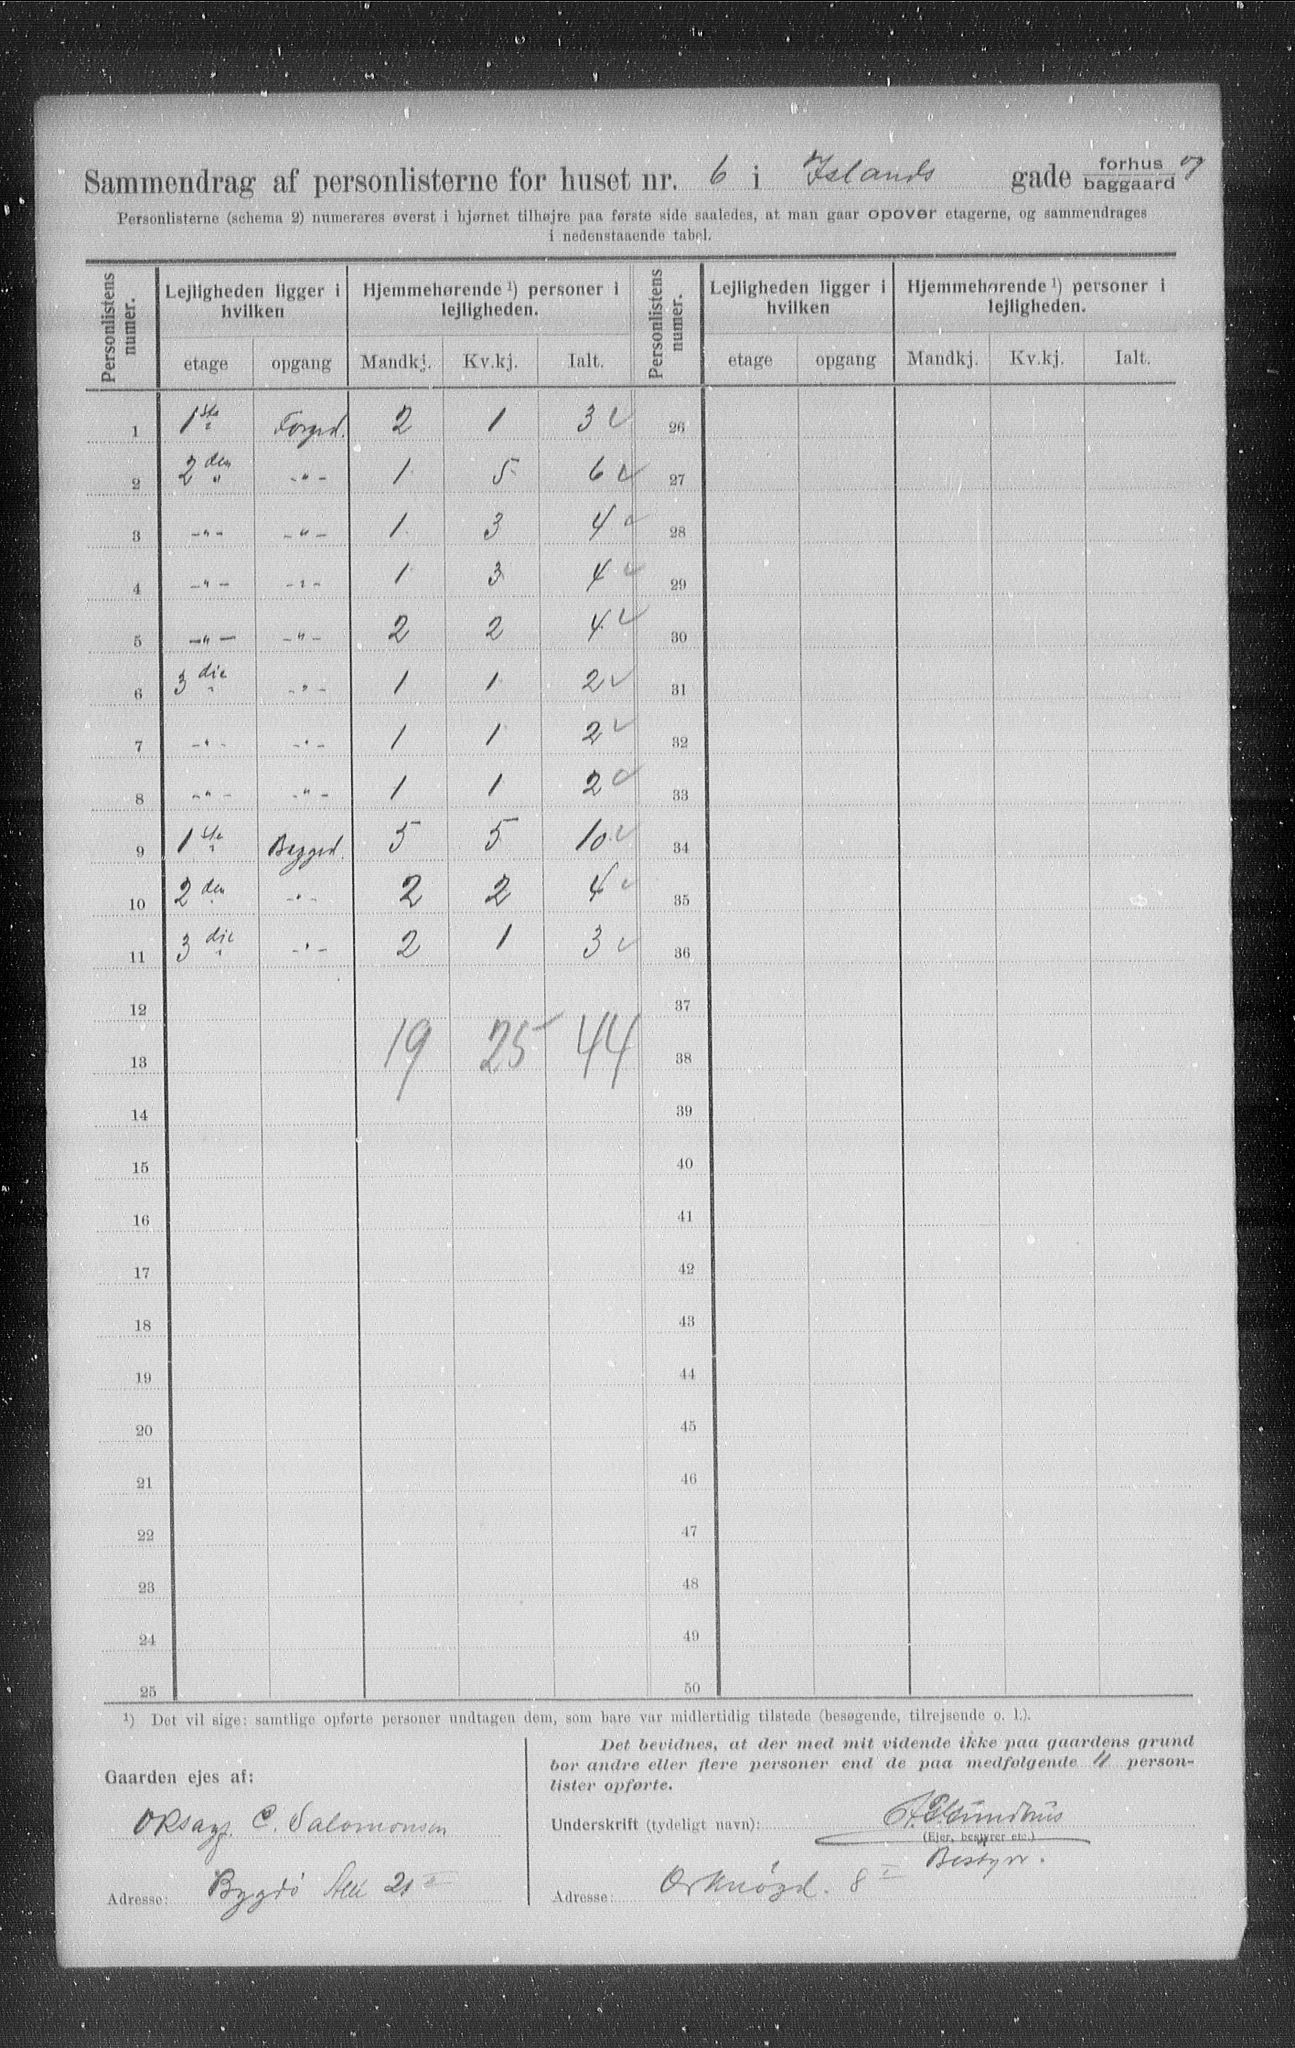 Sammendrag af personlisterne for huset nr. 6 i Islands gade forhus og baggaard
Personlisterne (schema 2) numereres øverst i hjørnet tilhøjre paa første side saaledes, at man gaar opover etagerne, og sammendrages
i nedenstaaende tabel.
Personlistens numer. Lejligheden ligger i hvilken Hjemmehørende ¹) personer i lejligheden. Personlistens numer. Lejligheden ligger i hvilken Hjemmehørende ¹) personer i lejligheden.
etage opgang Mandkj. Kv.kj. Ialt. etage opgang Mandkj. Kv.kj. Ialt.
1 1ste Forgrd. 2 1 3 ✓ 26
2 2 den -"- 1 5 6 ✓ 27
3 -"- -"- 1 3 4 ✓ 28
4 -"- -"- 1 3 4 ✓ 29
5 -"- -"- 2 2 4 ✓ 30
6 3 die -"- 1 1 2 ✓ 31
7 -"- -"- 1 1 2 ✓ 32
8 -"- -"- 1 1 2 ✓ 33
9 1ste Baggrd. 5 5 10 ✓ 34
10 2 den -"- 2 2 4 ✓ 35
11 3 die -"- 2 1 3 ✓ 36
12 37
19 25 44
13 38
14 39
15 40
16 41
17 42
18 43
19 44
20 45
21 46
22 47
23 48
24 49
25 50
¹) Det vil sige: samtlige opførte personer undtagen dem, som bare var midlertidig tilstede (besøgende, tilrejsende o. l.).
Det bevidnes, at der med mit vidende ikke paa gaardens grund
bor andre eller flere personer end de paa medfølgende 11 person-
lister opførte.
Gaarden ejes af:
C. Salomonsen
Adresse: Bygdø Alle 21 II
Underskrift (tydeligt navn):
(Ejer, bestyrer etc.)
Bestyrer.
Adresse: Orknøgd. 8 I